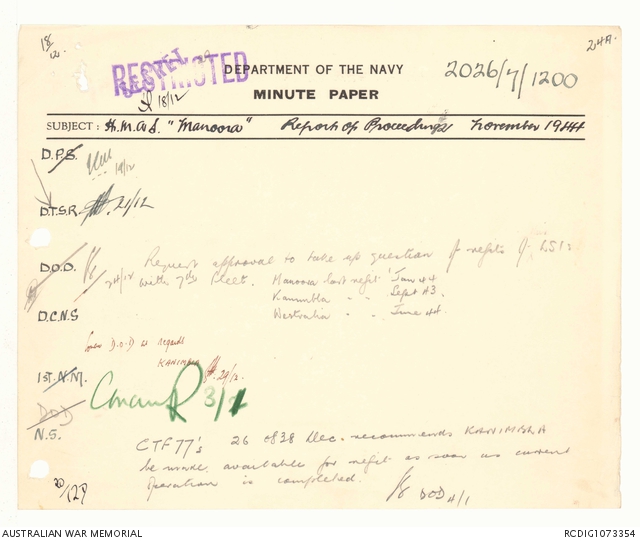 18/12.
24A.
RESTRICTED
SECRET
DEPARTMENT OF THE NAVY
2026/7/1200
MINUTE PAPER
18/12
SUBJECT : H.M.A.S. "Manoora" Report of Proceedings November 1944
D.P.S.
19/12
D.T.S.R.
21/12
D.O.D.
24/12
Request approval to take up question of refits of LSIs
with 7th Fleet. Manoora last refit Jan 44
Kanimbla " " Sept 43.
Westralia " " June 44.
D.C.N.S
D.O.D as regards
KANIMBLA 29/12.
1st N.M.
3/1
DOD
N.S.
CTF 77's 26 of 28 Dec. recommends KANIMBLA
be made available for refit as soon as current
operation is completed.
DOD 4/1
AUSTRALIAN WAR MEMORIAL
RCDIG1073354